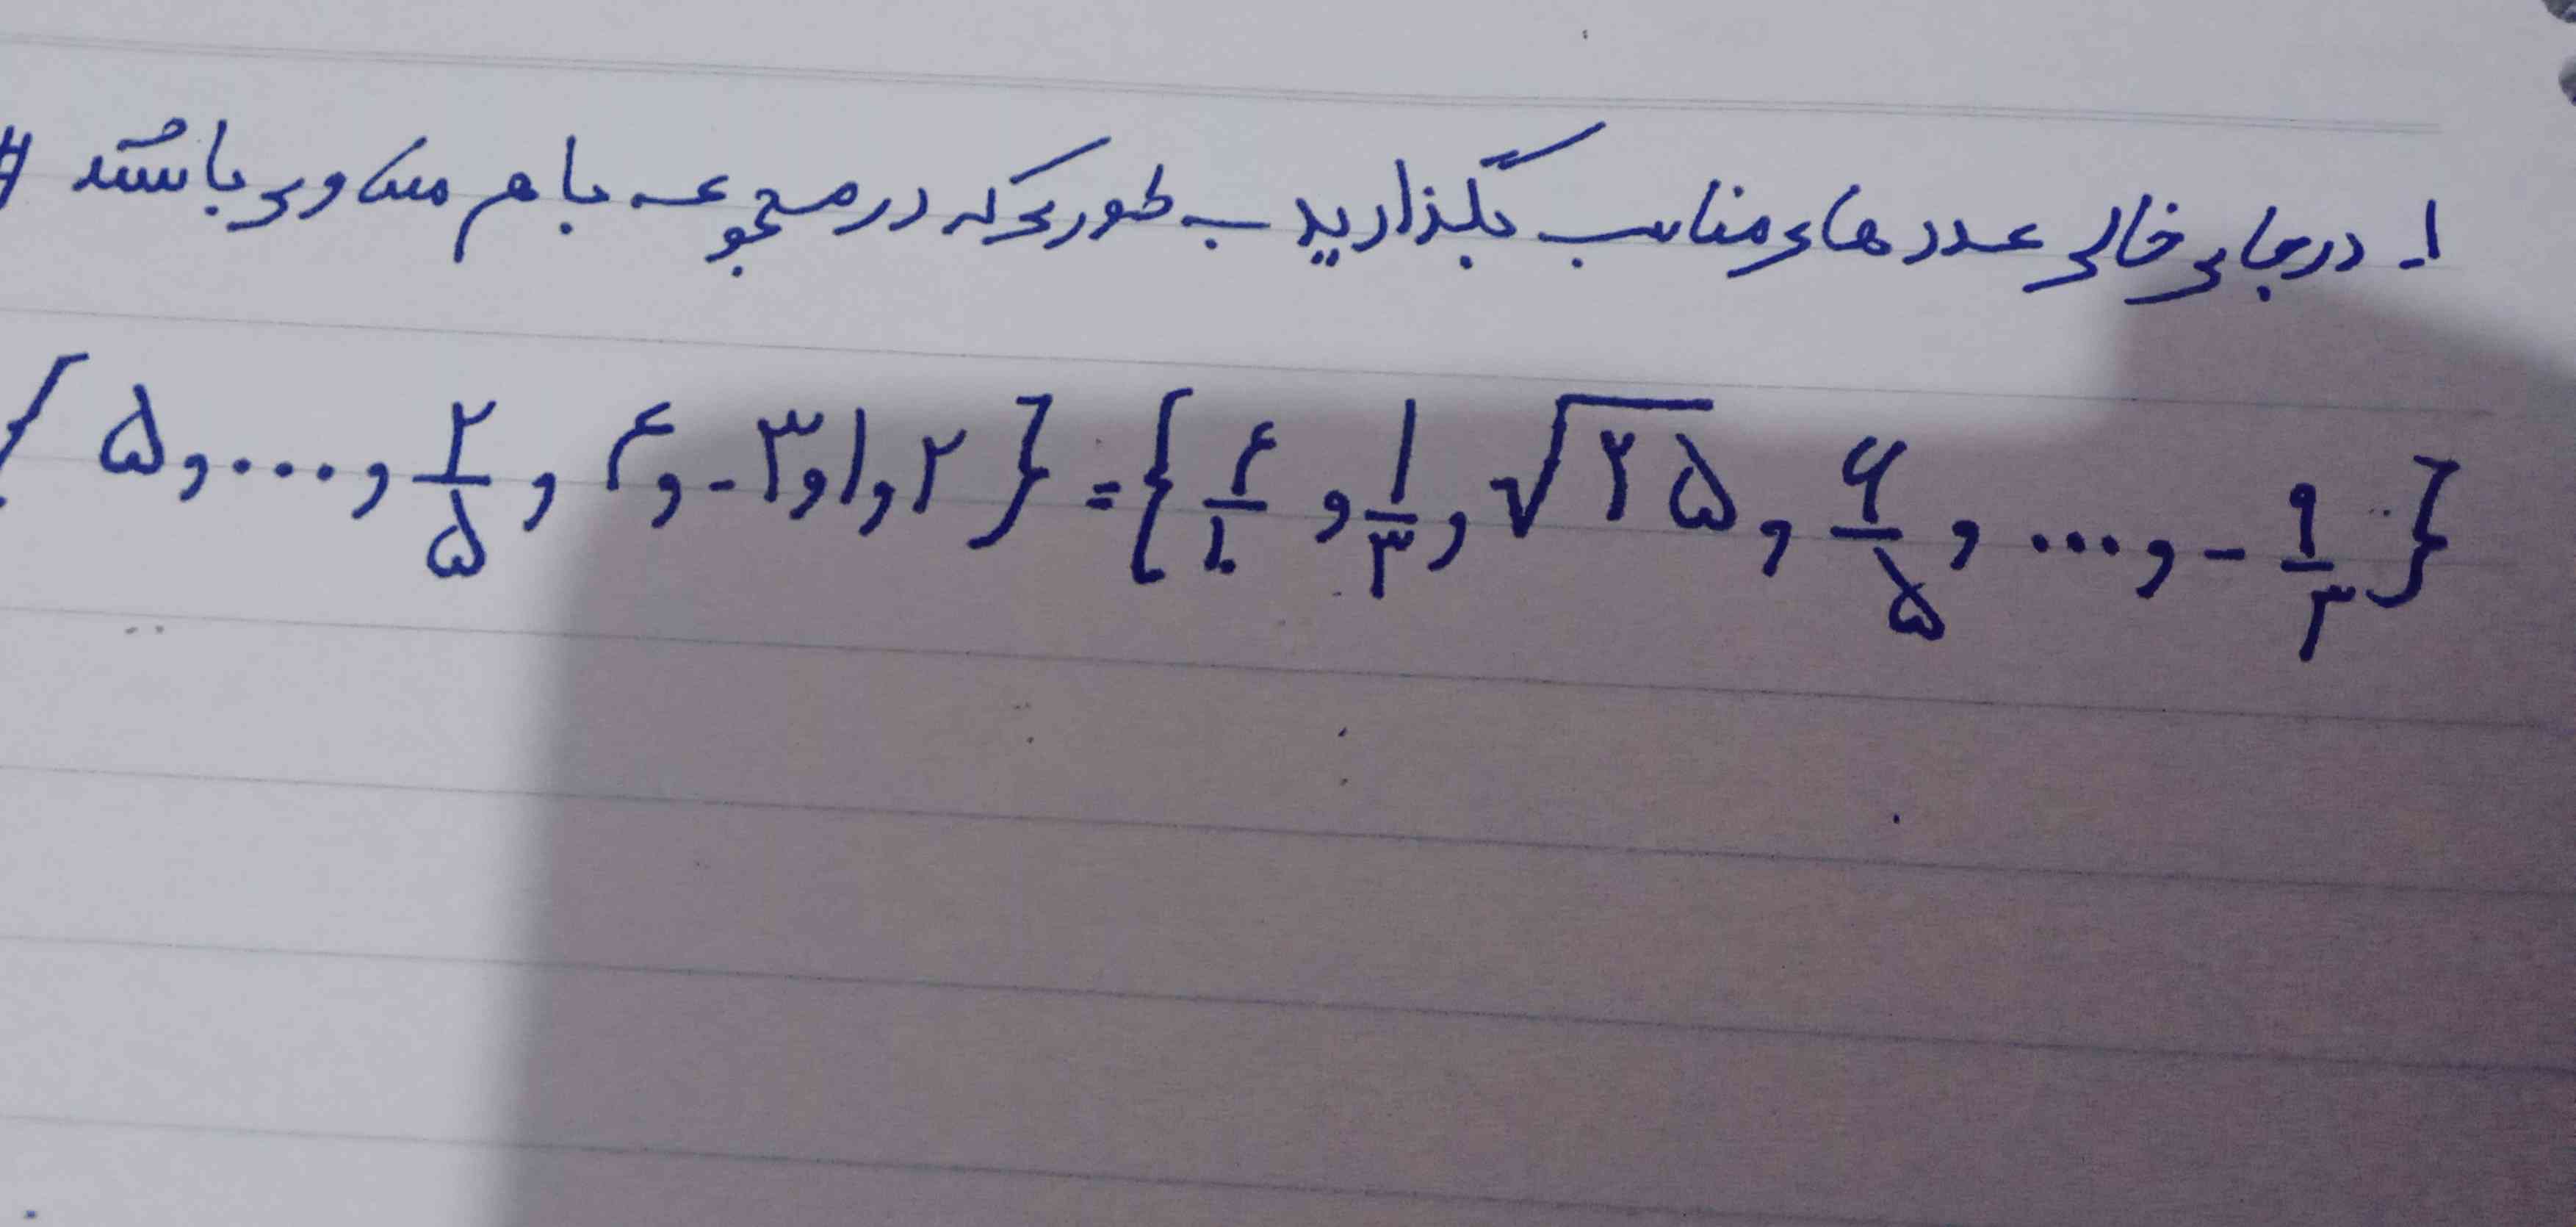 ۱- در جای خالی عددهای مناسب بگذارید به طوری که در مجموعه با هم مساوی باشند
{ ۵ , ... , ۲/۵ , ۴ , -۳ , ۱ , ۲ } = { ۴/۱۰ , ۱/۳ , √۲۵ , ۶/۵ , ... , -۹/۳ }